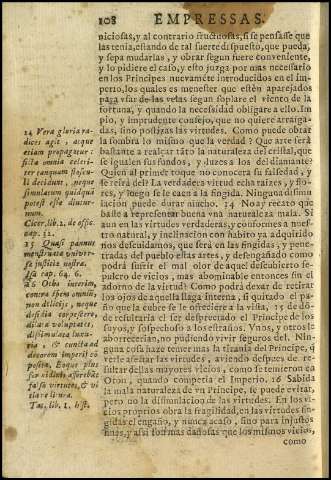 108 EMPRESSAS.
niciosas, y al contrario fructuosas, si se pensasse que
las tenia, estando de tal suerte dispuesto, que pueda,
y sepa mudarlas, y obrar segun fuere conveniente,
y lo pidiere el caso, y esto juzga por mas necessario
en los Principes nuevamẽte introducidos en el im-
perio, los quales es menester que estèn aparejados
para vsar de las velas segun soplare el viento de la
fortuna, y quando la necessidad obligare a ello. Im-
pio, y imprudente consejo, que no quiere arraiga-
das, sino postizas las virtudes. Como puede obrar
la sombra lo mismo que la verdad? Que arte serà
bastante a realçar tãto la naturaleza del cristal, que
se igualen sus fundos, y luzes a los del diamante?
Quien al primer toque no conocera su falsedad, y
se reirà del? La verdadera virtud echa raizes, y flo-
res, y luego se le caen a la fingida. Ninguna dissimu-
lacion puede durar mucho. 14 No ay recato que
baste a representar buena vna naturaleza mala. Si
aun en las virtudes verdaderas, y conformes a nues-
tro natural, y inclinacion con habito ya adquirido
nos descuidamos, que serà en las fingidas, y pene-
tradas del pueblo estas artes, y desengañado como
podrà sufrir el mal olor de aquel descubierto se-
pulcro de vicios, mas abominable entonces sin el
adorno de la virtud? Como podrà dexar de retirar
los ojos de aquella llaga interna, si quitado el pa-
ño que la cubre se le ofreciere a la vista, 15 de dõ-
de resultaria el ser despreciado el Principe de los
suyos, y sospechoso a los estraños. Vnos, y otros le
aborrecerian, no pudiendo vivir seguros del. Nin-
guna cosa haze temer mas la tirania del Principe, q̃
verle afectar las virtudes, aviendo despues de re-
sultar dellas mayores vicios, como se temieron en
Oton, quando competia el Imperio. 16 Sabida
la mala naturaleza de vn Principe, se puede evitar,
pero no la dissimulacion de las virtudes. En los vi-
cios proprios obra la fragilidad, en las virtudes fin-
gidas el engaño, y nunca acaso, sino para injustos
fines, y assi son mas dañosas que los mismos vicios,
como
14 Vera gloria ra-
dices agit, atque
etiam propagatur:
ficta omnia celeri-
ter tanquam floscu-
li decidunt, neque
simulatum quidquã
potest esse diutur-
num.
Cicer. lib. 2. de offic.
cap. 32.
15 Quasi pannus
menstruatæ univer-
sæ justitiæ nostræ.
Isa. cap. 64. 6.
16 Otho interim,
contra spem omniũ,
non delitijs, neque
desidia torpescere,
dilatæ voluptates,
dissimulata luxu-
ria, & cuncta ad
decorem imperij cõ-
posita. Eoque plus
formidinis afferebãt
falsæ virtutes, & vi-
tia reditura.
Tac. lib. 1. hist.